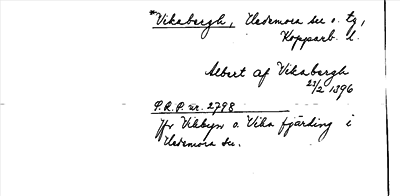 *Vikabergh, Hedemora sn o. tg,
Kopparb. l.
Albert af Vikabergh
23/2 1396
P.R.P. nr. 2798
Jfr Vikbyn o. Vika fjärding i
Hedemora sn.